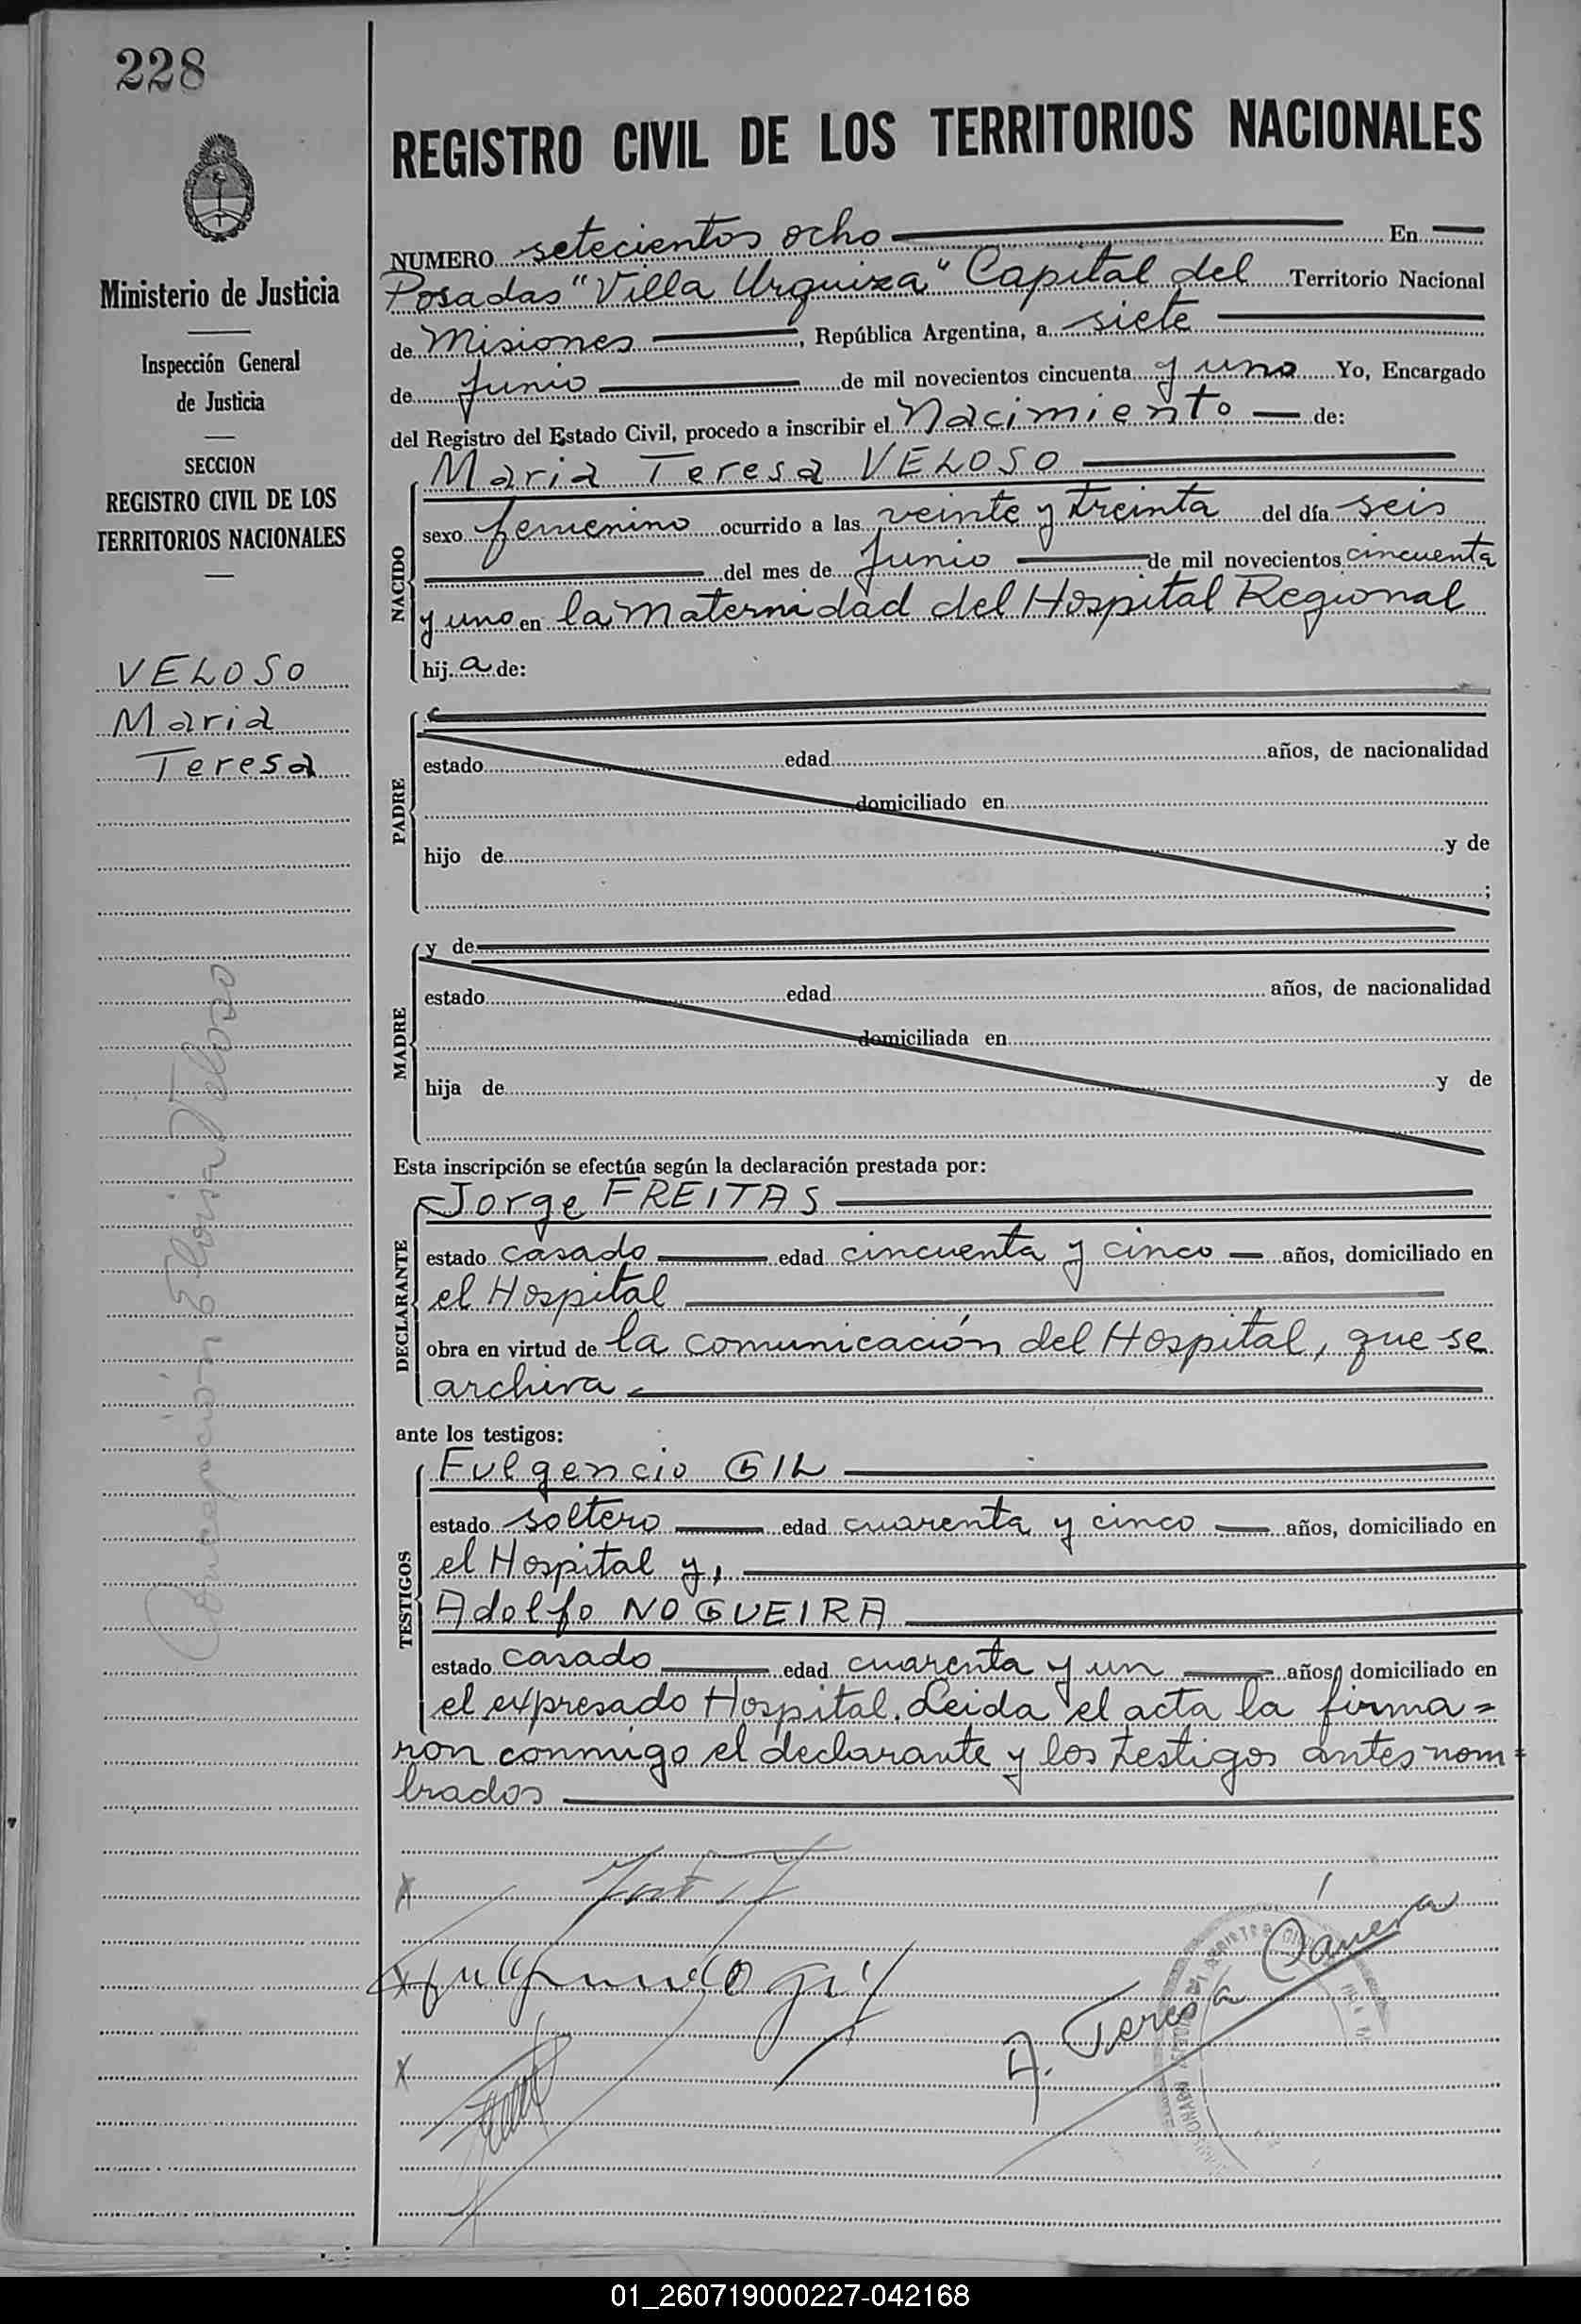 228
Ministerio de Justicia
Inspección General
de Justicia
SECCION
REGISTRO CIVIL DE LOS
TERRITORIOS NACIONALES
VELOSO
Maria
Teresa
Concepción Eloisa Veloso
REGISTRO CIVIL DE LOS TERRITORIOS NACIONALES
NUMERO setecientos ocho En
Posadas "Villa Urquiza" Capital del Territorio Nacional
de Misiones, República Argentina, a siete
de Junio de mil novecientos cincuenta y uno Yo, Encargado
del Registro del Estado Civil, procedo a inscribir el Nacimiento de:
NACIDO
Maria Teresa VELOSO
sexo femenino ocurrido a las veinte y treinta del día seis
del mes de Junio de mil novecientos cincuenta
y uno en la Maternidad del Hospital Regional
hij a de:
PADRE
estado edad años, de nacionalidad
domiciliado en
hijo de y de
;
MADRE
y de
estado edad años, de nacionalidad
domiciliada en
hija de y de
Esta inscripción se efectúa según la declaración prestada por:
DECLARANTE
Jorge FREITAS
estado casado edad cincuenta y cinco años, domiciliado en
el Hospital
obra en virtud de la comunicación del Hospital, que se
archiva
ante los testigos:
TESTIGOS
Fulgencio GIL
estado soltero edad cuarenta y cinco años, domiciliado en
el Hospital y,
Adolfo NOGUEIRA
estado casado edad cuarenta y un años, domiciliado en
el expresado Hospital. Leida el acta la firma=
ron conmigo el declarante y los testigos antes nom=
brados
x
x Fulgencio Gil
x
A. Teresa
01_260719000227-042168